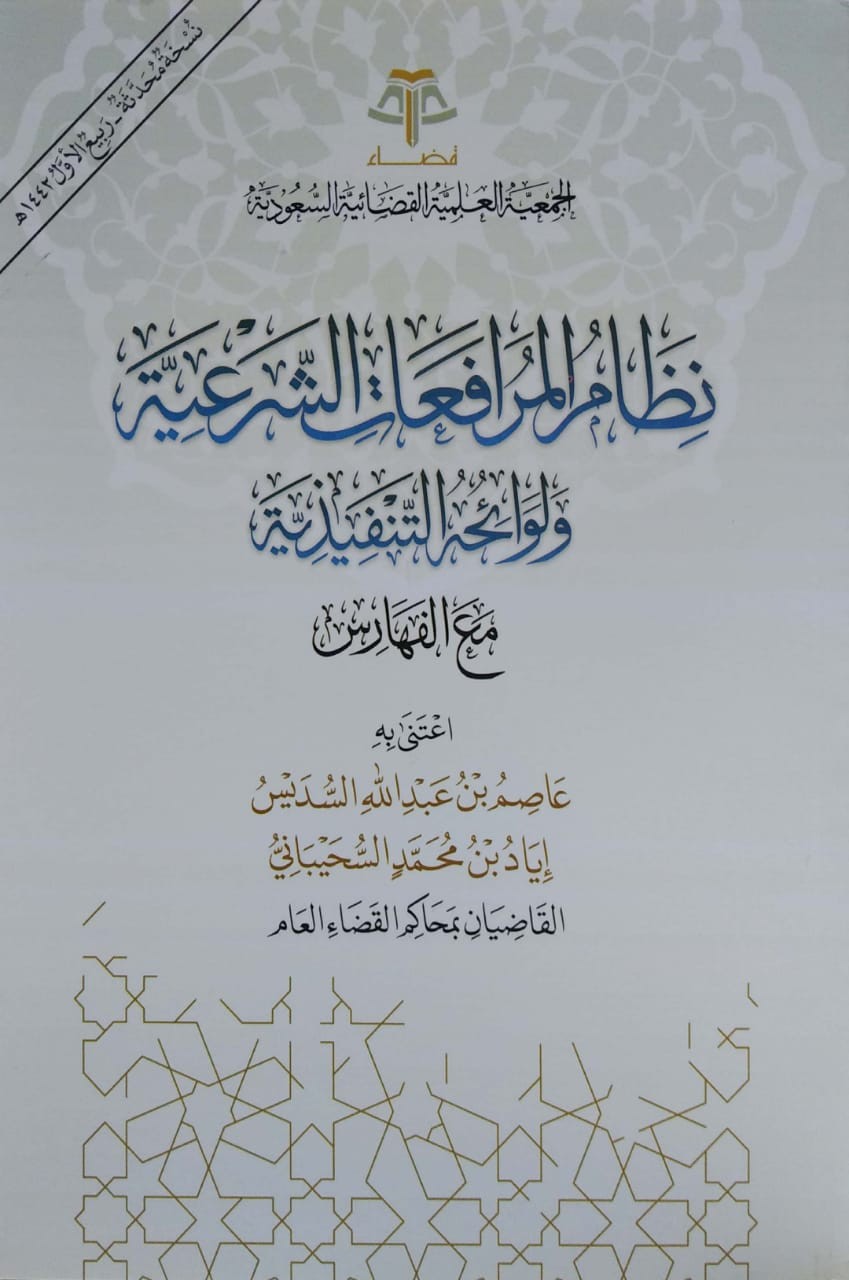 نُسْخَةٌ مُحَدَّثَةٌ - رَبِيعُ الأَوَّلُ ١٤٤٢هـ
قضاء
الجَمْعِيَّةُ العِلْمِيَّةُ القَضَائِيَّةُ السُّعُودِيَّةُ
نِظَامُ المُرَافَعَاتِ الشَّرْعِيَّةِ
وَلَوَائِحُهُ التَّنْفِيذِيَّةِ
مَعَ الفَهَارِسِ
اعْتَنَى بِهِ
عَاصِمُ بْنُ عَبْدِ اللهِ السُّدَيْسُ
إِيَادُ بْنُ مُحَمَّدٍ السُّحَيْبَانِيُّ
القَاضِيَانِ بِمَحَاكِمِ القَضَاءِ العَامِ